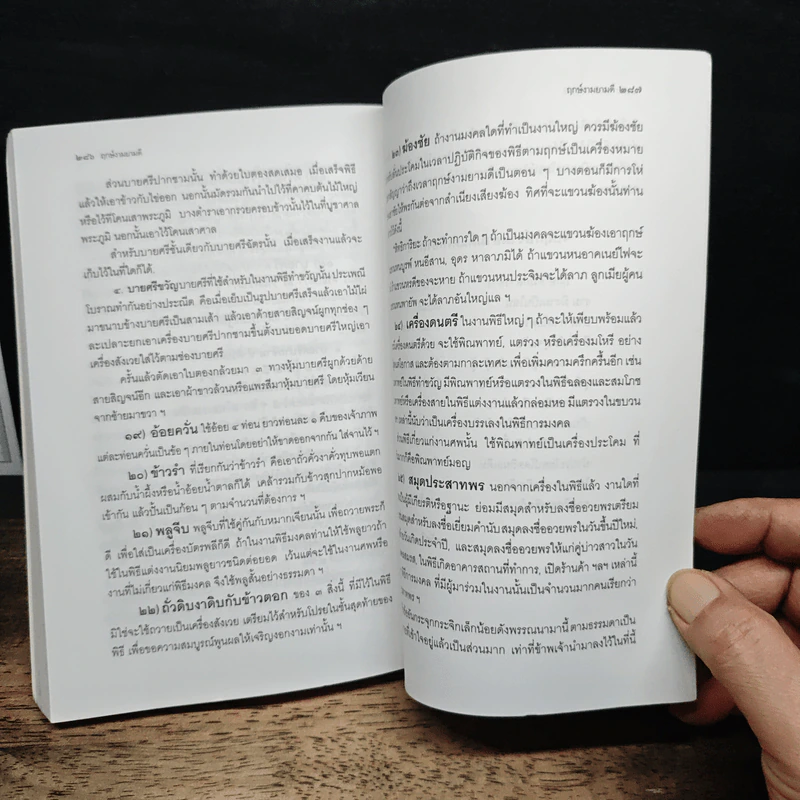 ๒๘๖ ฤกษ์งามยามดี
ส่วนบายศรีปากชามนั้น ทำด้วยใบตองสดเสมอ เมื่อเสร็จพิธี
แล้วให้เอาข้าวกับไข่ออก นอกนั้นมัดรวมกันนำไปไว้ที่คาคบต้นไม้ใหญ่
หรือไว้ที่โคนเสาพระภูมิ บางตำราเอากรวยครอบข้าวนั้นไว้ในที่บูชาศาล
พระภูมิ นอกนั้นเอาไว้โคนเสาศาล
สำหรับบายศรีชั้นเดียวกับบายศรีฉัตรนั้น เมื่อเสร็จงานแล้วจะ
เก็บไว้ในที่ใดก็ได้.
๔. บายศรีขวัญ บายศรีที่ใช้สำหรับในงานพิธีทำขวัญนั้น ประเพณี
โบราณทำกันอย่างประณีต คือเมื่อเย็บเป็นรูปบายศรีเสร็จแล้วเอาไม้ไผ่
มาขนาบข้างบายศรีเป็นสามเส้า แล้วเอาด้ายสายสิญจน์ผูกทุกช่อง ๆ
ละเปลาะยกเอาเครื่องบายศรีปากชามขึ้นตั้งบนยอดบายศรีใหญ่เอา
เครื่องสังเวยใส่ไว้ตามช่องบายศรี
ครั้นแล้วตัดเอาใบตองกล้วยมา ๓ ทางหุ้มบายศรีผูกด้วยด้าย
สายสิญจน์อีก และเอาผ้าขาวล้วนหรือแพรสีมาหุ้มบายศรี โดยหุ้มเวียน
จากซ้ายมาขวา ฯ
๑๙) อ้อยควั่น ใช้อ้อย ๔ ท่อน ยาวท่อนละ ๑ คืบของเจ้าภาพ
แต่ละท่อนควั่นเป็นข้อ ๆ ภายในท่อนโดยอย่าให้ขาดออกจากกัน ใส่จานไว้ ฯ
๒๐) ข้าวรำ ที่เรียกกันว่าข้าวรำ คือเอาถั่วคั่วงาคั่วทุบพอแตก
ผสมกับน้ำผึ้งหรือน้ำอ้อยน้ำตาลก็ได้ เคล้ารวมกับข้าวสุกปากหม้อพอ
เข้ากัน แล้วปั้นเป็นก้อน ๆ ตามจำนวนที่ต้องการ ฯ
๒๑) พลูจีบ พลูจีบที่ใช้คู่กันกับหมากเจียนนั้น เพื่อถวายพระก็
ดี เพื่อใส่เป็นเครื่องบัตรพลีก็ดี ถ้าในงานพิธีมงคลท่านให้ใช้พลูยาวถ้า
ใช้ในพิธีแต่งงานนิยมพลูยาวชนิดต่อยอด เว้นแต่จะใช้ในงานศพหรือ
งานที่ไม่เกี่ยวแก่พิธีมงคล จึงใช้พลูสั้นอย่างธรรมดา ฯ
๒๒) ถั่วดิบงาดิบกับข้าวตอก ของ ๓ สิ่งนี้ ที่มีไว้ในพิธี
มิใช่จะใช้ถวายเป็นเครื่องสังเวย เตรียมไว้สำหรับโปรยในขั้นสุดท้ายของ
พิธี เพื่อขอความสมบูรณ์พูนผลให้เจริญงอกงามเท่านั้น ฯ
ฤกษ์งามยามดี ๒๘๗
๒๓) ฆ้องชัย ถ้างานมงคลใดที่ทำเป็นงานใหญ่ ควรมีฆ้องชัย
ประโคมในเวลาปฏิบัติกิจของพิธีตามฤกษ์เป็นเครื่องหมาย
สัญญาว่าถึงเวลาฤกษ์งามยามดีเป็นตอน ๆ บางตอนก็มีการโห่
ให้พรกันต่อจากสำเนียงเสียงฆ้อง ทิศที่จะแขวนฆ้องนั้นท่าน
ไว้ดังนี้
สิทธิการิยะ ถ้าจะทำการใด ๆ ถ้าเป็นมงคลจะแขวนฆ้องเอาฤกษ์
บูรพ์ หนอีสาน, อุดร หาลาภมิได้ ถ้าแขวนหนอาคเนย์ไฟจะ
หรดีของจะหาย ถ้าแขวนหนประจิมจะได้ลาภ ลูกเมียผู้คน
หนพายัพ จะได้ลาภอันใหญ่แล ฯ
๒๔) เครื่องดนตรี ในงานพิธีใหญ่ ๆ ถ้าจะให้เพียบพร้อมแล้ว
เครื่องดนตรีด้วย จะใช้พิณพาทย์, แตรวง หรือเครื่องมโหรี อย่าง
โอกาส และต้องตามกาละเทศะ เพื่อเพิ่มความครึกครื้นอีก เช่น
ในพิธีทำขวัญ มีพิณพาทย์หรือแตรวงในพิธีฉลองและสมโภช
หรือเครื่องสายในพิธีแต่งงานแล้วกล่อมหอ มีแตรวงในขบวน
เหล่านี้นับว่าเป็นเครื่องบรรเลงในพิธีการมงคล
พิธีเกี่ยวแก่งานศพนั้น ใช้พิณพาทย์เป็นเครื่องประโคม ที่
มากก็คือพิณพาทย์มอญ
๒๕) สมุดประสาทพร นอกจากเครื่องในพิธีแล้ว งานใดที่
เป็นผู้มีเกียรติหรือฐานะ ย่อมมีสมุดสำหรับลงชื่ออวยพรเตรียม
สมุดสำหรับลงชื่อเยี่ยมคำนับ สมุดลงชื่ออวยพรในวันขึ้นปีใหม่,
วันเกิดประจำปี, และสมุดลงชื่ออวยพรให้แก่คู่บ่าวสาวในวัน
สมรส, ในพิธีเกิดอาคารสถานที่ทำการ, เปิดร้านค้า ฯลฯ เหล่านี้
พิธีการมงคล ที่มีผู้มาร่วมในงานนั้นเป็นจำนวนมากคนเรียกว่า
พร ฯ
กระจุกกระจิกเล็กน้อยดังพรรณนามานี้ ตามธรรมดาเป็น
ที่เข้าใจอยู่แล้วเป็นส่วนมาก เท่าที่ข้าพเจ้านำมาลงไว้ในที่นี้